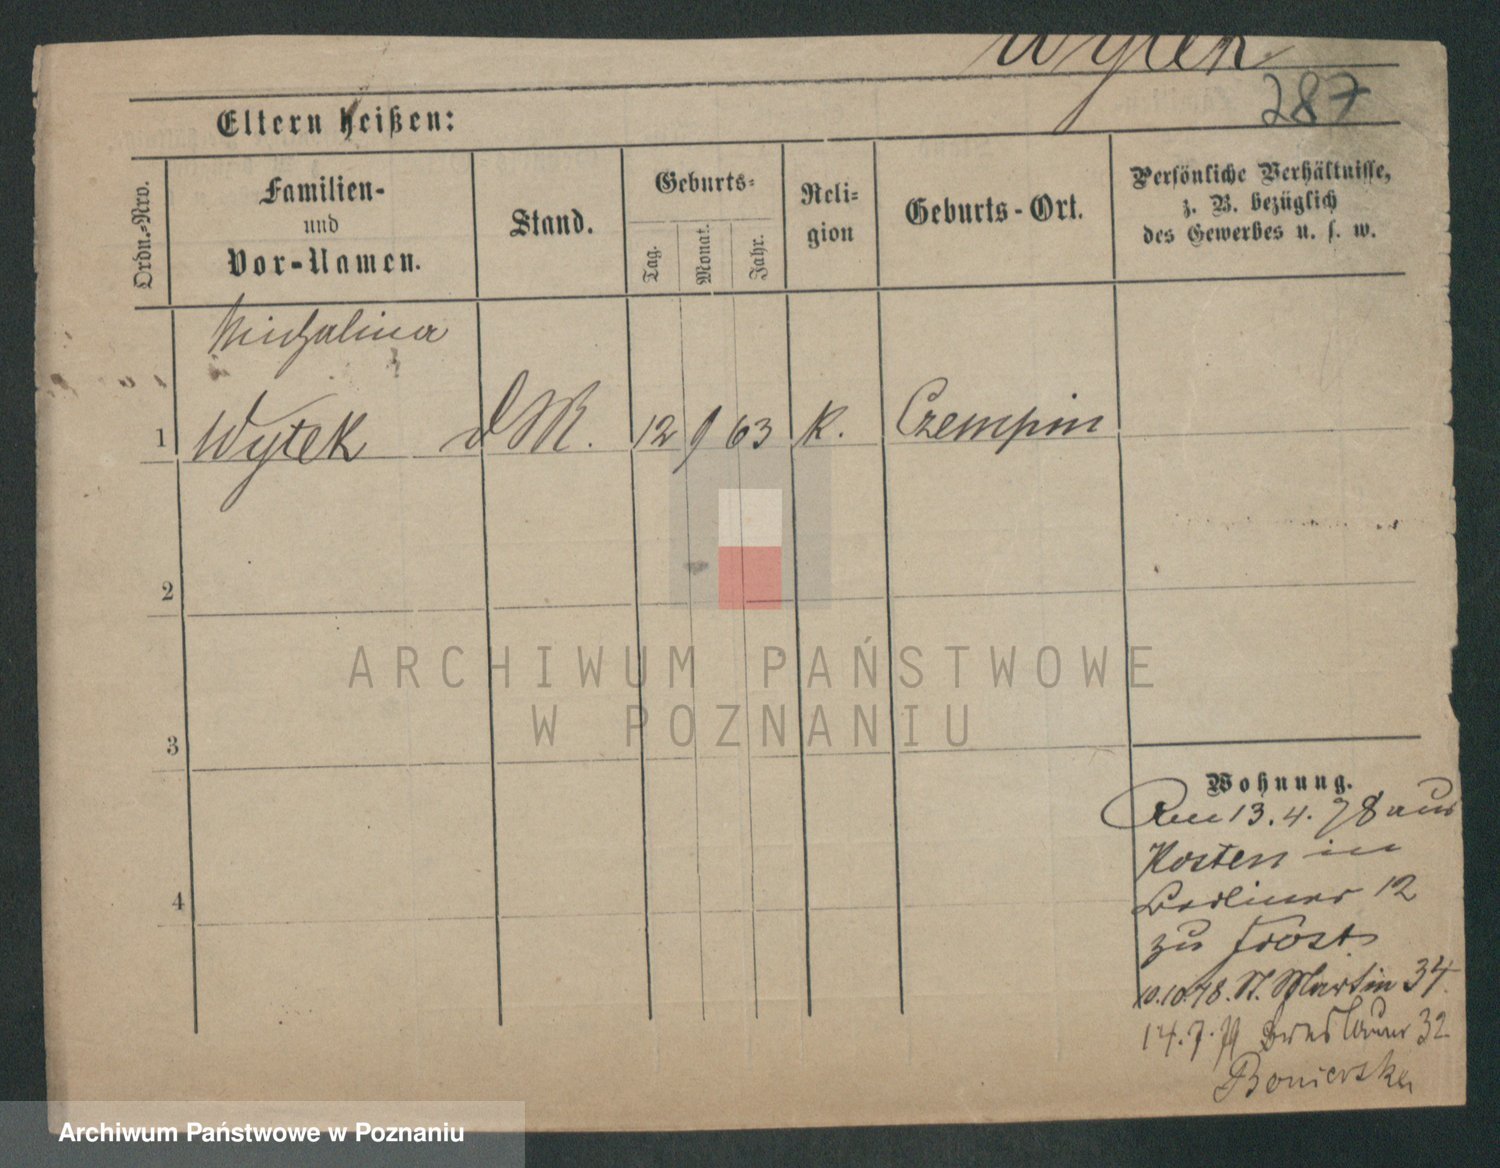 Wytek
287
Eltern heißen:
Ordn.-Nro.
Familien-
und
Vor-Namen.
Stand.
Geburts-
Tag.
Monat.
Jahr.
Reli-
gion
Geburts-Ort.
Persönliche Verhältnisse,
z. B. bezüglich
des Gewerbes u. s. w.
Michalina
1 Wytek d M. 12 9 63 K. Czempin
2
3
4
Wohnung.
Am 13.4.78 aus
Kosten in
Berliner 12
zu Frost
10.10.78. St. Martin 34.
14.7.79 Breslauer 32
ARCHIWUM PAŃSTWOWE
W POZNANIU
Archiwum Państwowe w Poznaniu